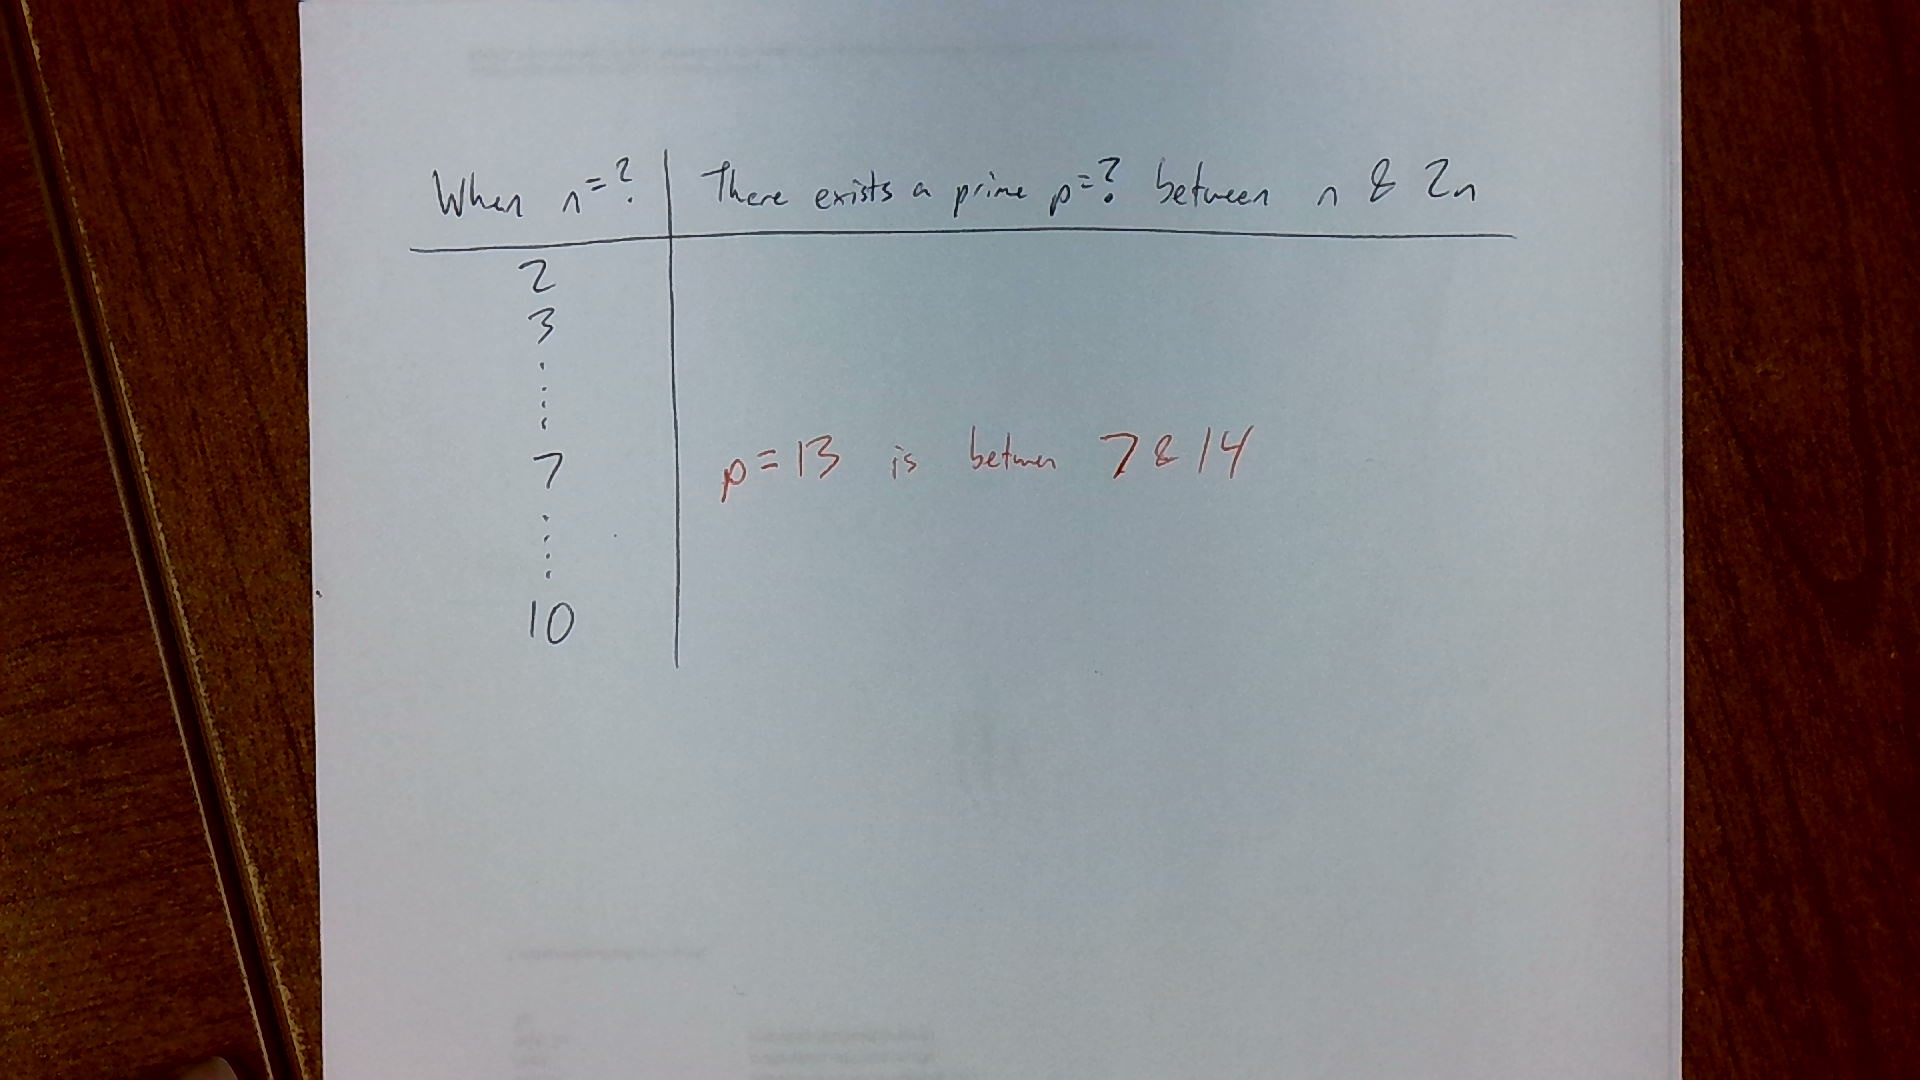 When n=? There exists a prime p=? between n & 2n
2
3
7 p=13 is between 7 & 14
10